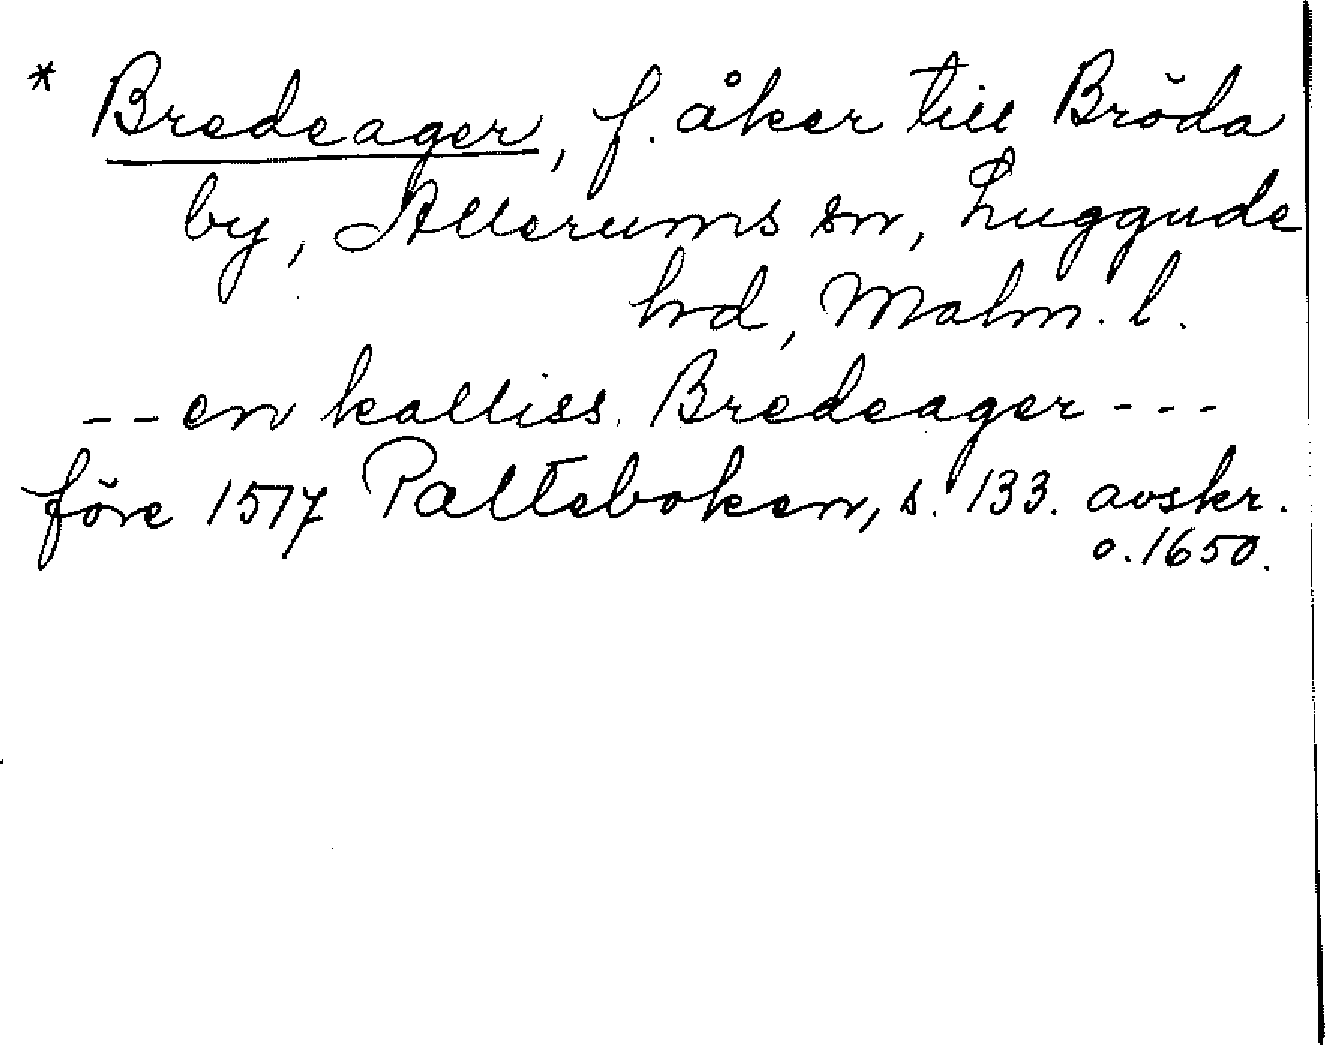 * Bredeager, f. åker till Bröda
by, Allerums sn, Luggude
hrd, Malm. l.
-- en kalliss. Bredeager ---
före 1517 Palteboken, s. 133. avskr.
o. 1650.